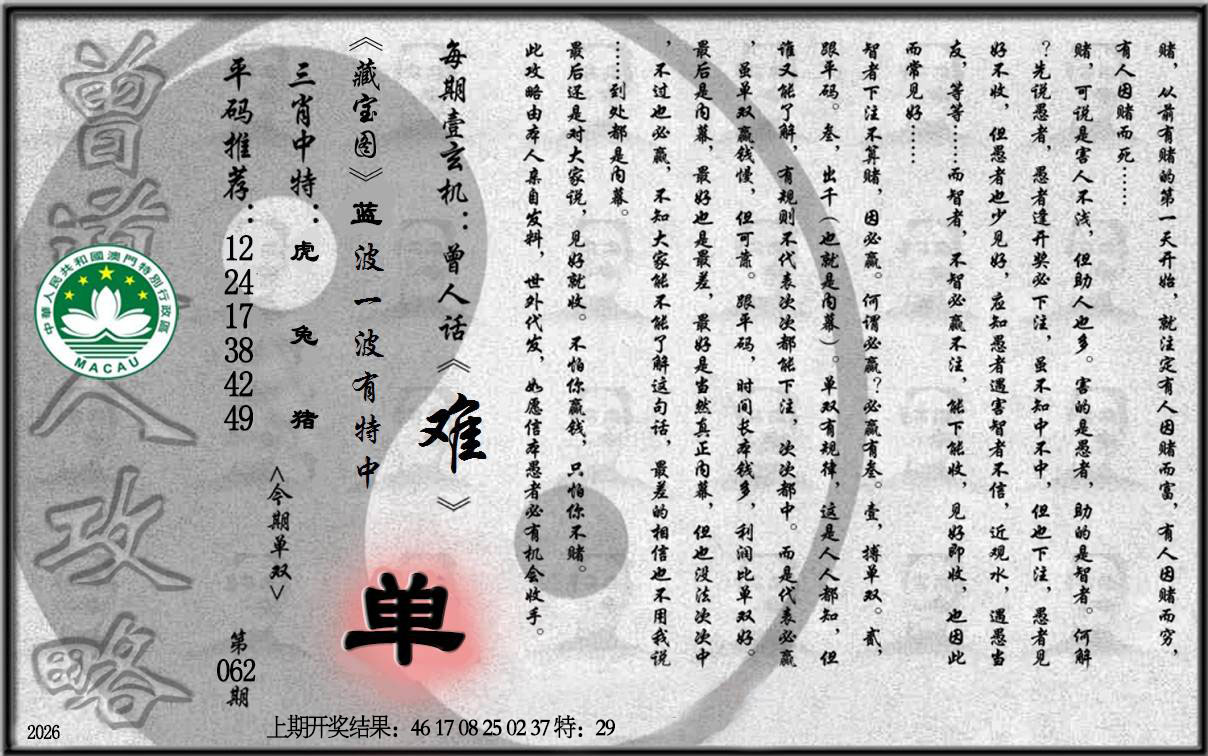 赌，从前有赌的第一天开始，就注定有人因赌而富，有人因赌而穷，
有人因赌而死……
赌，可说是害人不浅，但助人也多。害的是愚者，助的是智者。何解
？先说愚者，愚者逢开奖必下注，虽不知中不中，但也下注，愚者见
好不收，但愚者也少见好，应知愚者遇害智者不信，近观水，遇愚当
友，等等……而智者，不智必赢不注，能下能收，见好即收，也因此
而常见好……
智者下注不算赌，因必赢。何谓必赢？必赢有叁。壹，搏单双。贰，
跟平码。叁，出千（也就是内幕）。单双有规律，这是人人都知，但
谁又能了解，有规则不代表次次都能下注，次次都中。而是代表必赢
，虽单双赢钱慢，但可靠。跟平码，时间长本钱多，利润比单双好。
最后是内幕，最好也是最差，最好是当然真正内幕，但也没法次次中
，不过也必赢，不知大家能不能了解这句话，最差的相信也不用我说
……到处都是内幕。
最后还是对大家说，见好就收。不怕你赢钱，只怕你不赌。
此攻略由本人亲自发料，世外代发，如愿信本愚者必有机会收手。
每期壹玄机：曾人话《难》
《藏宝图》蓝波一波有特中
三肖中特：虎 兔 猪
平码推荐：12 24 17 38 42 49
<今期单双>
单
第062期
曾道人攻略
中華人民共和國澳門特別行政區
MACAU
2026
上期开奖结果：46 17 08 25 02 37 特：29